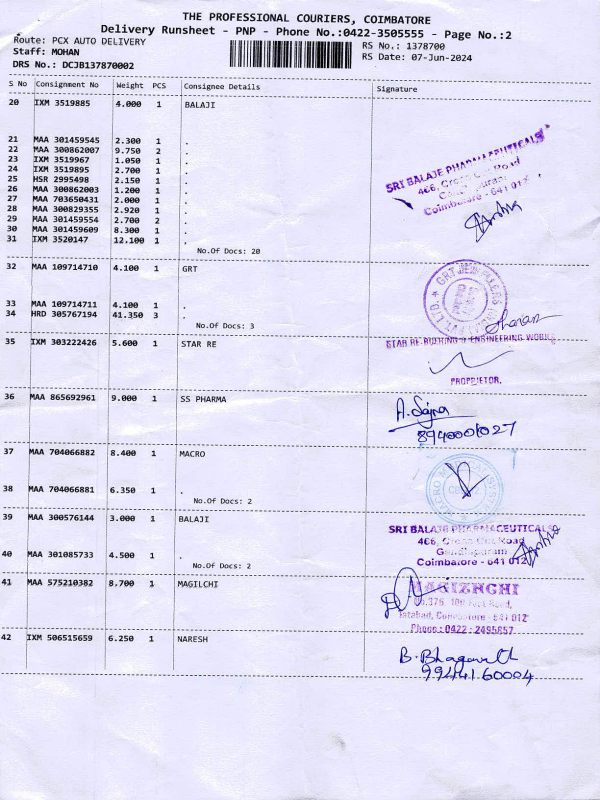 THE PROFESSIONAL COURIERS, COIMBATORE
Delivery Runsheet - PNP - Phone No.:0422-3505555 - Page No.:2
Route: PCX AUTO DELIVERY
RS No.: 1378700
Staff: MOHAN
RS Date: 07-Jun-2024
DRS No.: DCJB137870002
S No Consignment No Weight PCS Consignee Details Signature
20 IXM 3519885 4.000 1 BALAJI
21 MAA 301459545 2.300 1 .
22 MAA 300862007 9.750 2 .
23 IXM 3519967 1.050 1 .
24 IXM 3519895 2.700 1 .
25 HSR 2995498 2.150 1 .
26 MAA 300862003 1.200 1 .
27 MAA 703650431 2.000 1 .
28 MAA 300829355 2.920 1 .
29 MAA 301459554 2.700 2 .
30 MAA 301459609 8.300 1 .
31 IXM 3520147 12.100 1 .
No.Of Docs: 20
SRI BALAJE PHARMACEUTICALS
466, Cross Cut Road
Coimbatore - 641 012
32 MAA 109714710 4.100 1 GRT
33 MAA 109714711 4.100 1 .
34 HRD 305767194 41.350 3 .
No.Of Docs: 3
GRT JEWELLERS
Sharan
35 IXM 303222426 5.600 1 STAR RE
STAR RE-BUTTING & ENGINEERING WORKS
PROPRIETOR.
36 MAA 865692961 9.000 1 SS PHARMA
A. Sajna
8940001027
37 MAA 704066882 8.400 1 MACRO
38 MAA 704066881 6.350 1 .
No.Of Docs: 2
39 MAA 300576144 3.000 1 BALAJI
SRI BALAJE PHARMACEUTICALS
466, Cross Cut Road
Gandhipuram
Coimbatore - 641 012
40 MAA 301085733 4.500 1 .
No.Of Docs: 2
41 MAA 575210382 8.700 1 MAGILCHI
MAGIZHCHI
No.376, 100 Feet Road,
Tatabad, Coimbatore - 641 012
Phone : 0422 - 2495857
42 IXM 506515659 6.250 1 NARESH
B. Bhagavath
9944160004